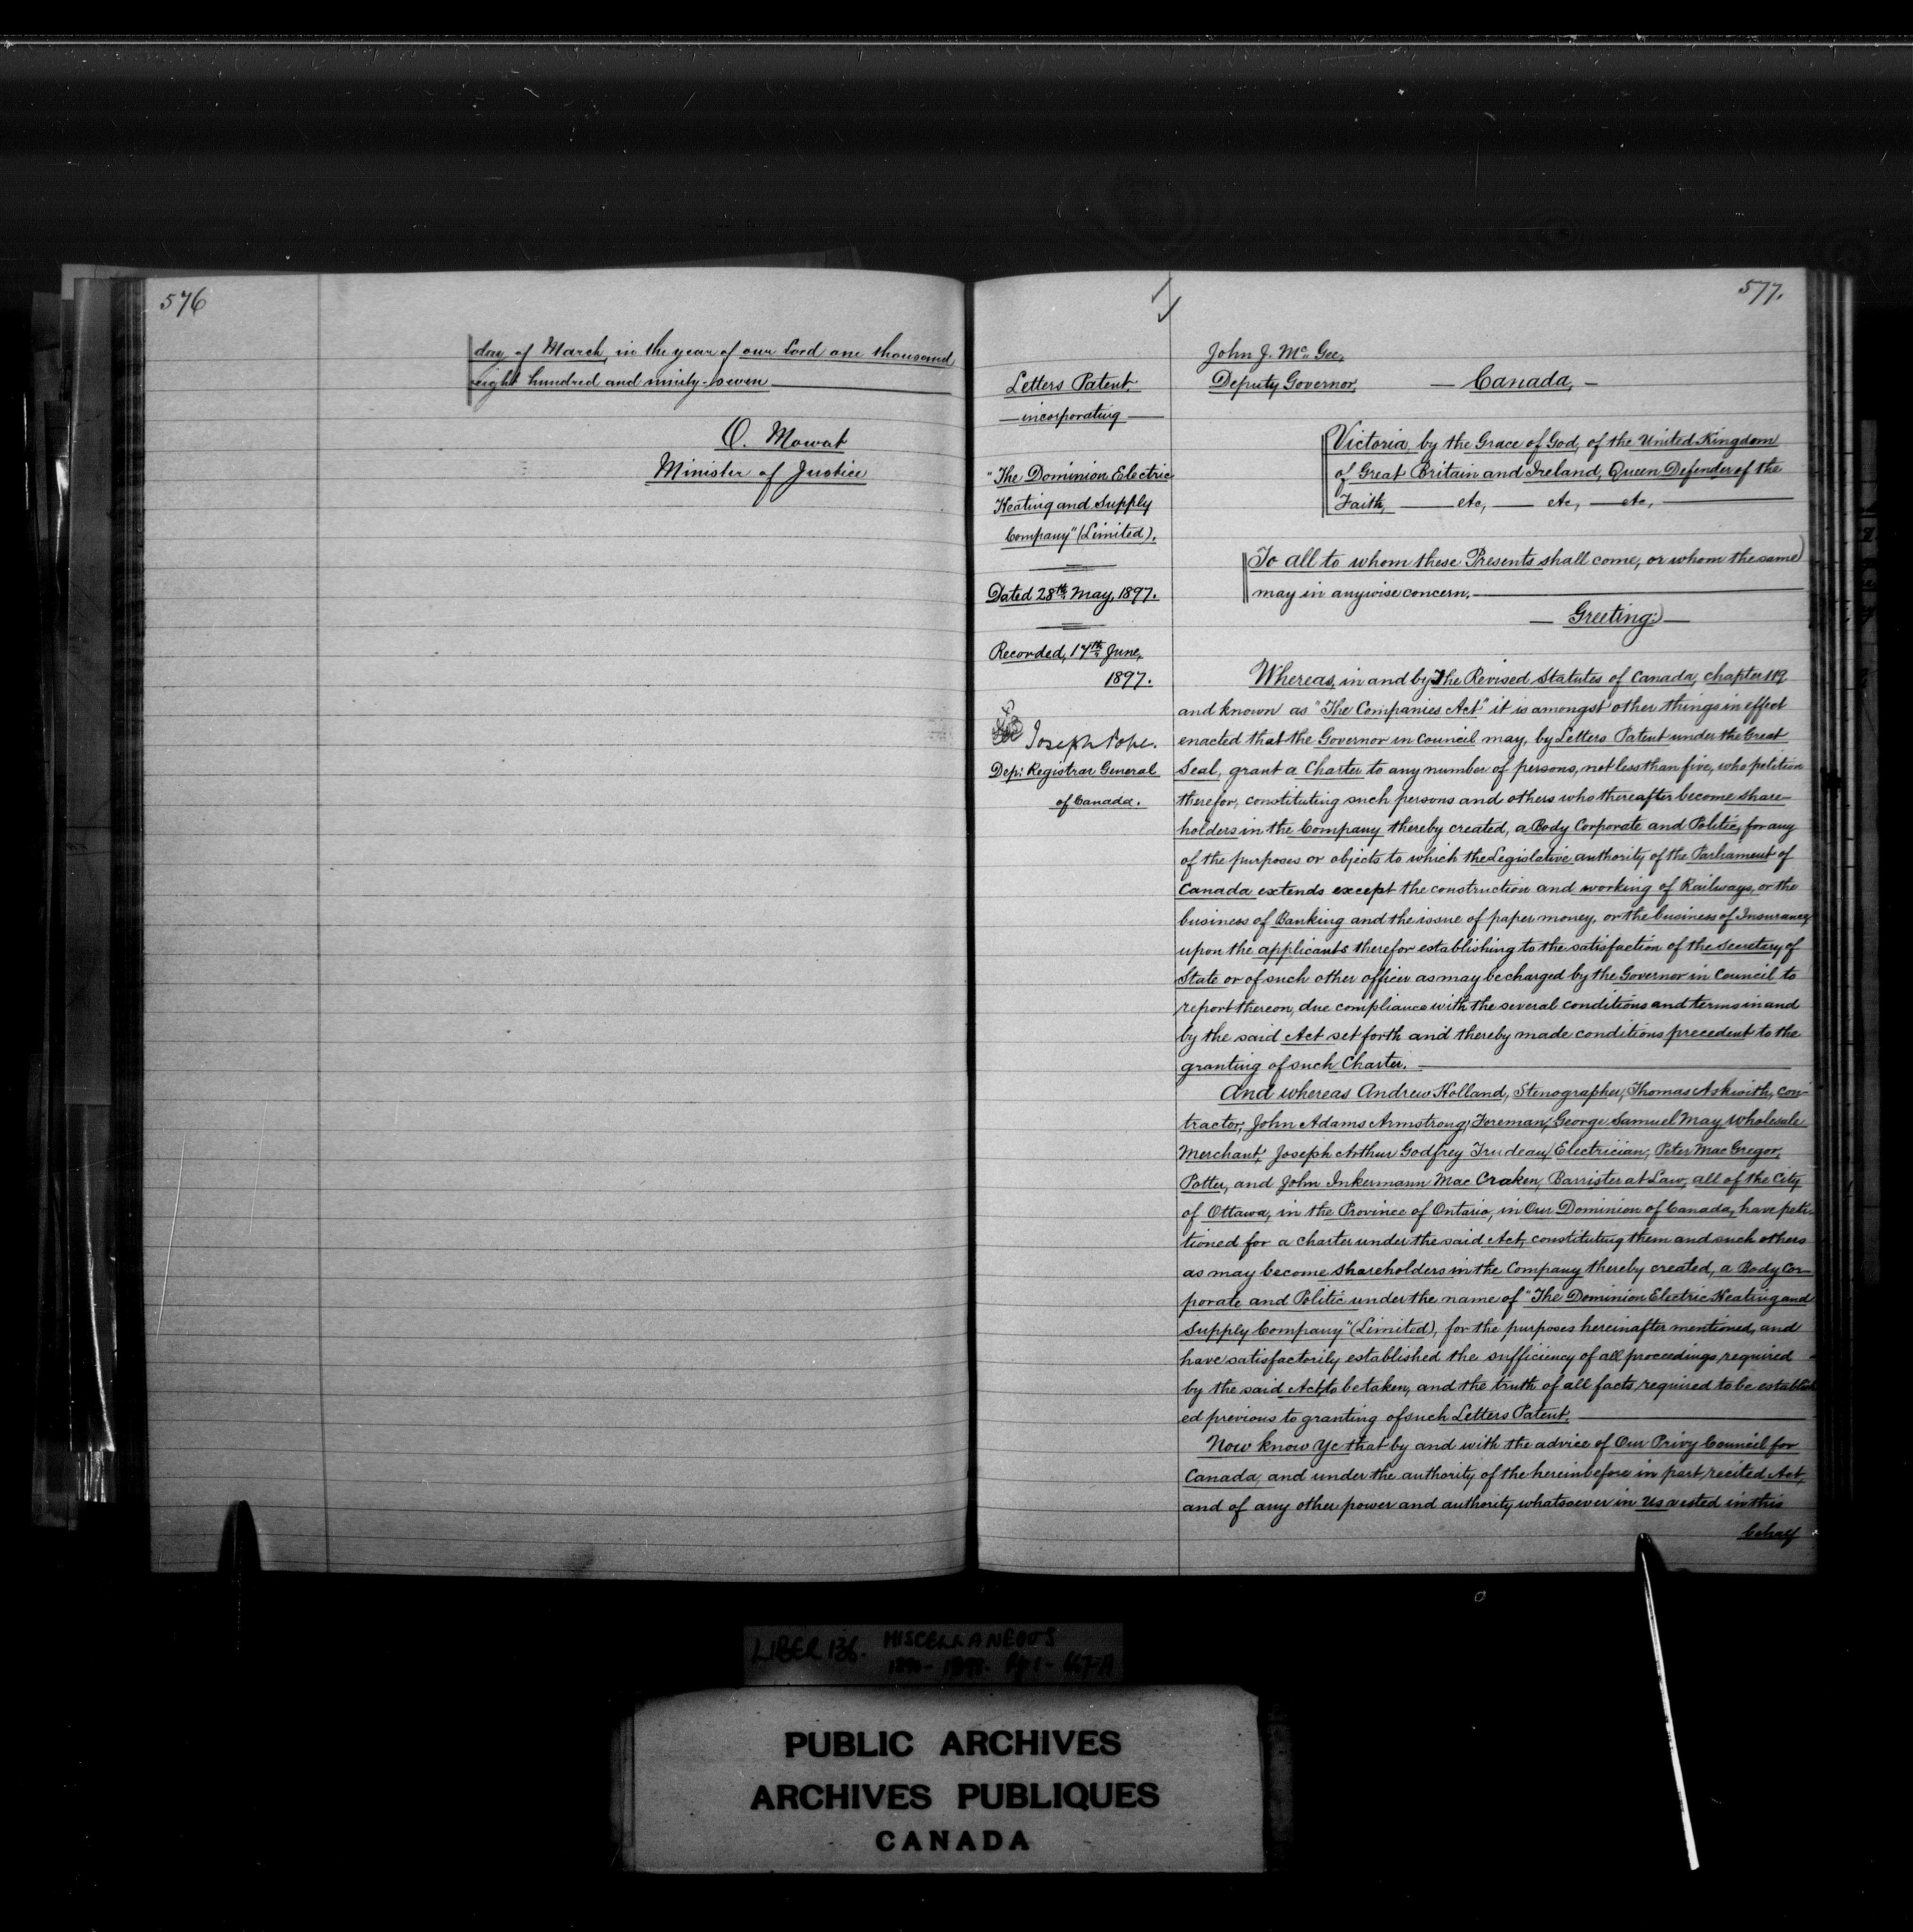 576
day of March, in the year of our Lord one thousand
eight hundred and ninety-seven
O. Mowat
Minister of Justice
577.
Letters Patent,
incorporating
"The Dominion Electric
Heating and Supply
Company" (Limited).
Dated 28th May, 1897.
Recorded, 17th June,
1897.
Joseph Pope.
Dep: Registrar General
of Canada.
John J. McGee,
Deputy Governor,
— Canada, —
Victoria, by the Grace of God, of the United Kingdom
of Great Britain and Ireland, Queen Defender of the
Faith, — etc, — etc, — etc,
To all to whom these Presents shall come, or whom the same
may in anywise concern,
— Greeting: —
Whereas, in and by The Revised Statutes of Canada, chapter 119
and known as "The Companies Act" it is amongst other things in effect
enacted that the Governor in Council may, by Letters Patent under the Great
Seal, grant a Charter to any number of persons, not less than five, who petition
therefor, constituting such persons and others who thereafter become share-
holders in the Company thereby created, a Body Corporate and Politic, for any
of the purposes or objects to which the Legislative authority of the Parliament of
Canada extends except the construction and working of Railways, or the
business of Banking and the issue of paper money, or the business of Insurance,
upon the applicants therefor establishing to the satisfaction of the Secretary of
State or of such other officer as may be charged by the Governor in Council to
report thereon, due compliance with the several conditions and terms in and
by the said Act set forth and thereby made conditions precedent to the
granting of such Charter.
And whereas Andrew Holland, Stenographer, Thomas Askwith, Con-
tractor, John Adams Armstrong, Foreman, George Samuel May, Wholesale
Merchant, Joseph Arthur Godfrey Trudeau, Electrician, Peter MacGregor,
Potter, and John Inkermann MacCraken, Barrister at Law, all of the City
of Ottawa, in the Province of Ontario, in Our Dominion of Canada, have peti-
tioned for a charter under the said Act, constituting them and such others
as may become shareholders in the Company thereby created, a Body Cor-
porate and Politic under the name of "The Dominion Electric Heating and
Supply Company" (Limited), for the purposes hereinafter mentioned, and
have satisfactorily established the sufficiency of all proceedings required
by the said Act, to be taken, and the truth of all facts required to be establish
ed previous to granting of such Letters Patent.
Now know Ye that by and with the advice of Our Privy Council for
Canada, and under the authority of the hereinbefore in part recited Act,
and of any other power and authority whatsoever in Us vested in this
behalf
LIBER 136. MISCELLANEOUS
PUBLIC ARCHIVES
ARCHIVES PUBLIQUES
CANADA